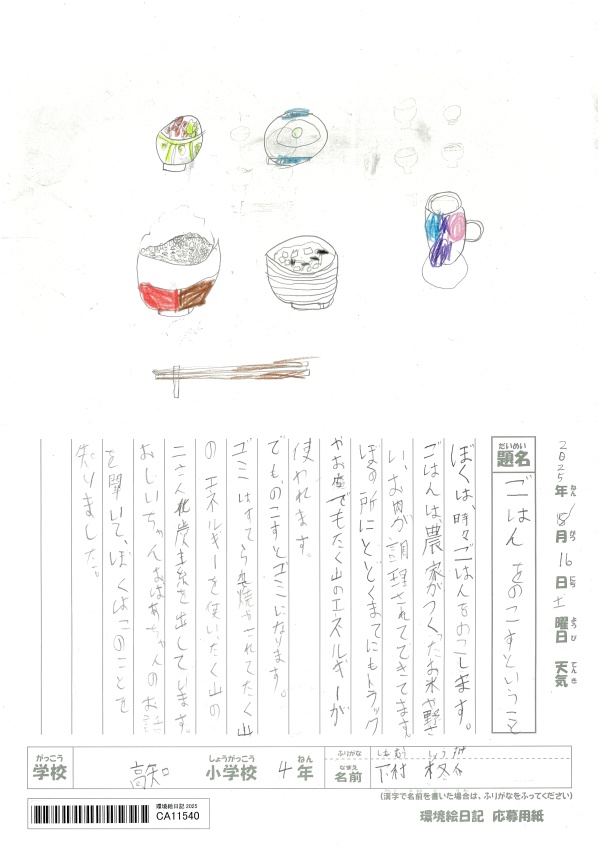 2025年 8月 16日 土曜日 天気
ねん がつ にち ようび てんき
だいめい
題名
ごはんをのこすということ
ぼくは、時々ごはんをのこします。
ごはんは、農家がつくったお米や野さ
い、お肉が調理されてできてます。
ぼくの所にとどくまでにもトラック
やお店でもたく山のエネルギーが
使われます。
でも、のこすとゴミになります。
ゴミはすてられ焼やされてたく山
のエネルギーを使いたく山の
二さん化炭素を出しています。
おじいちゃんおばあちゃんのお話
を聞いて、ぼくはこのことを
知りました。
がっこう しょうがっこう ねん ふりがな
学校 小学校 4年
なまえ
名前 下村
(漢字で名前を書いた場合は、ふりがなをふってください)
環境絵日記 応募用紙
環境絵日記 2025
CA11540